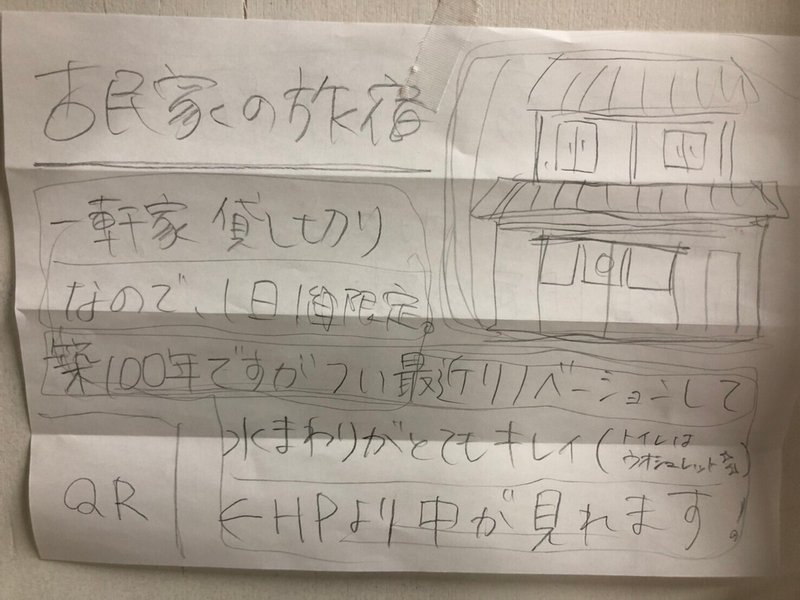 古民家の旅宿
一軒家 貸し切り
なので、1日1組限定。
築100年ですがつい最近リノベーションして
水まわりがとてもキレイ(トイレは
ウオシュレット☆☆)
QR
←HPより中が見れます。